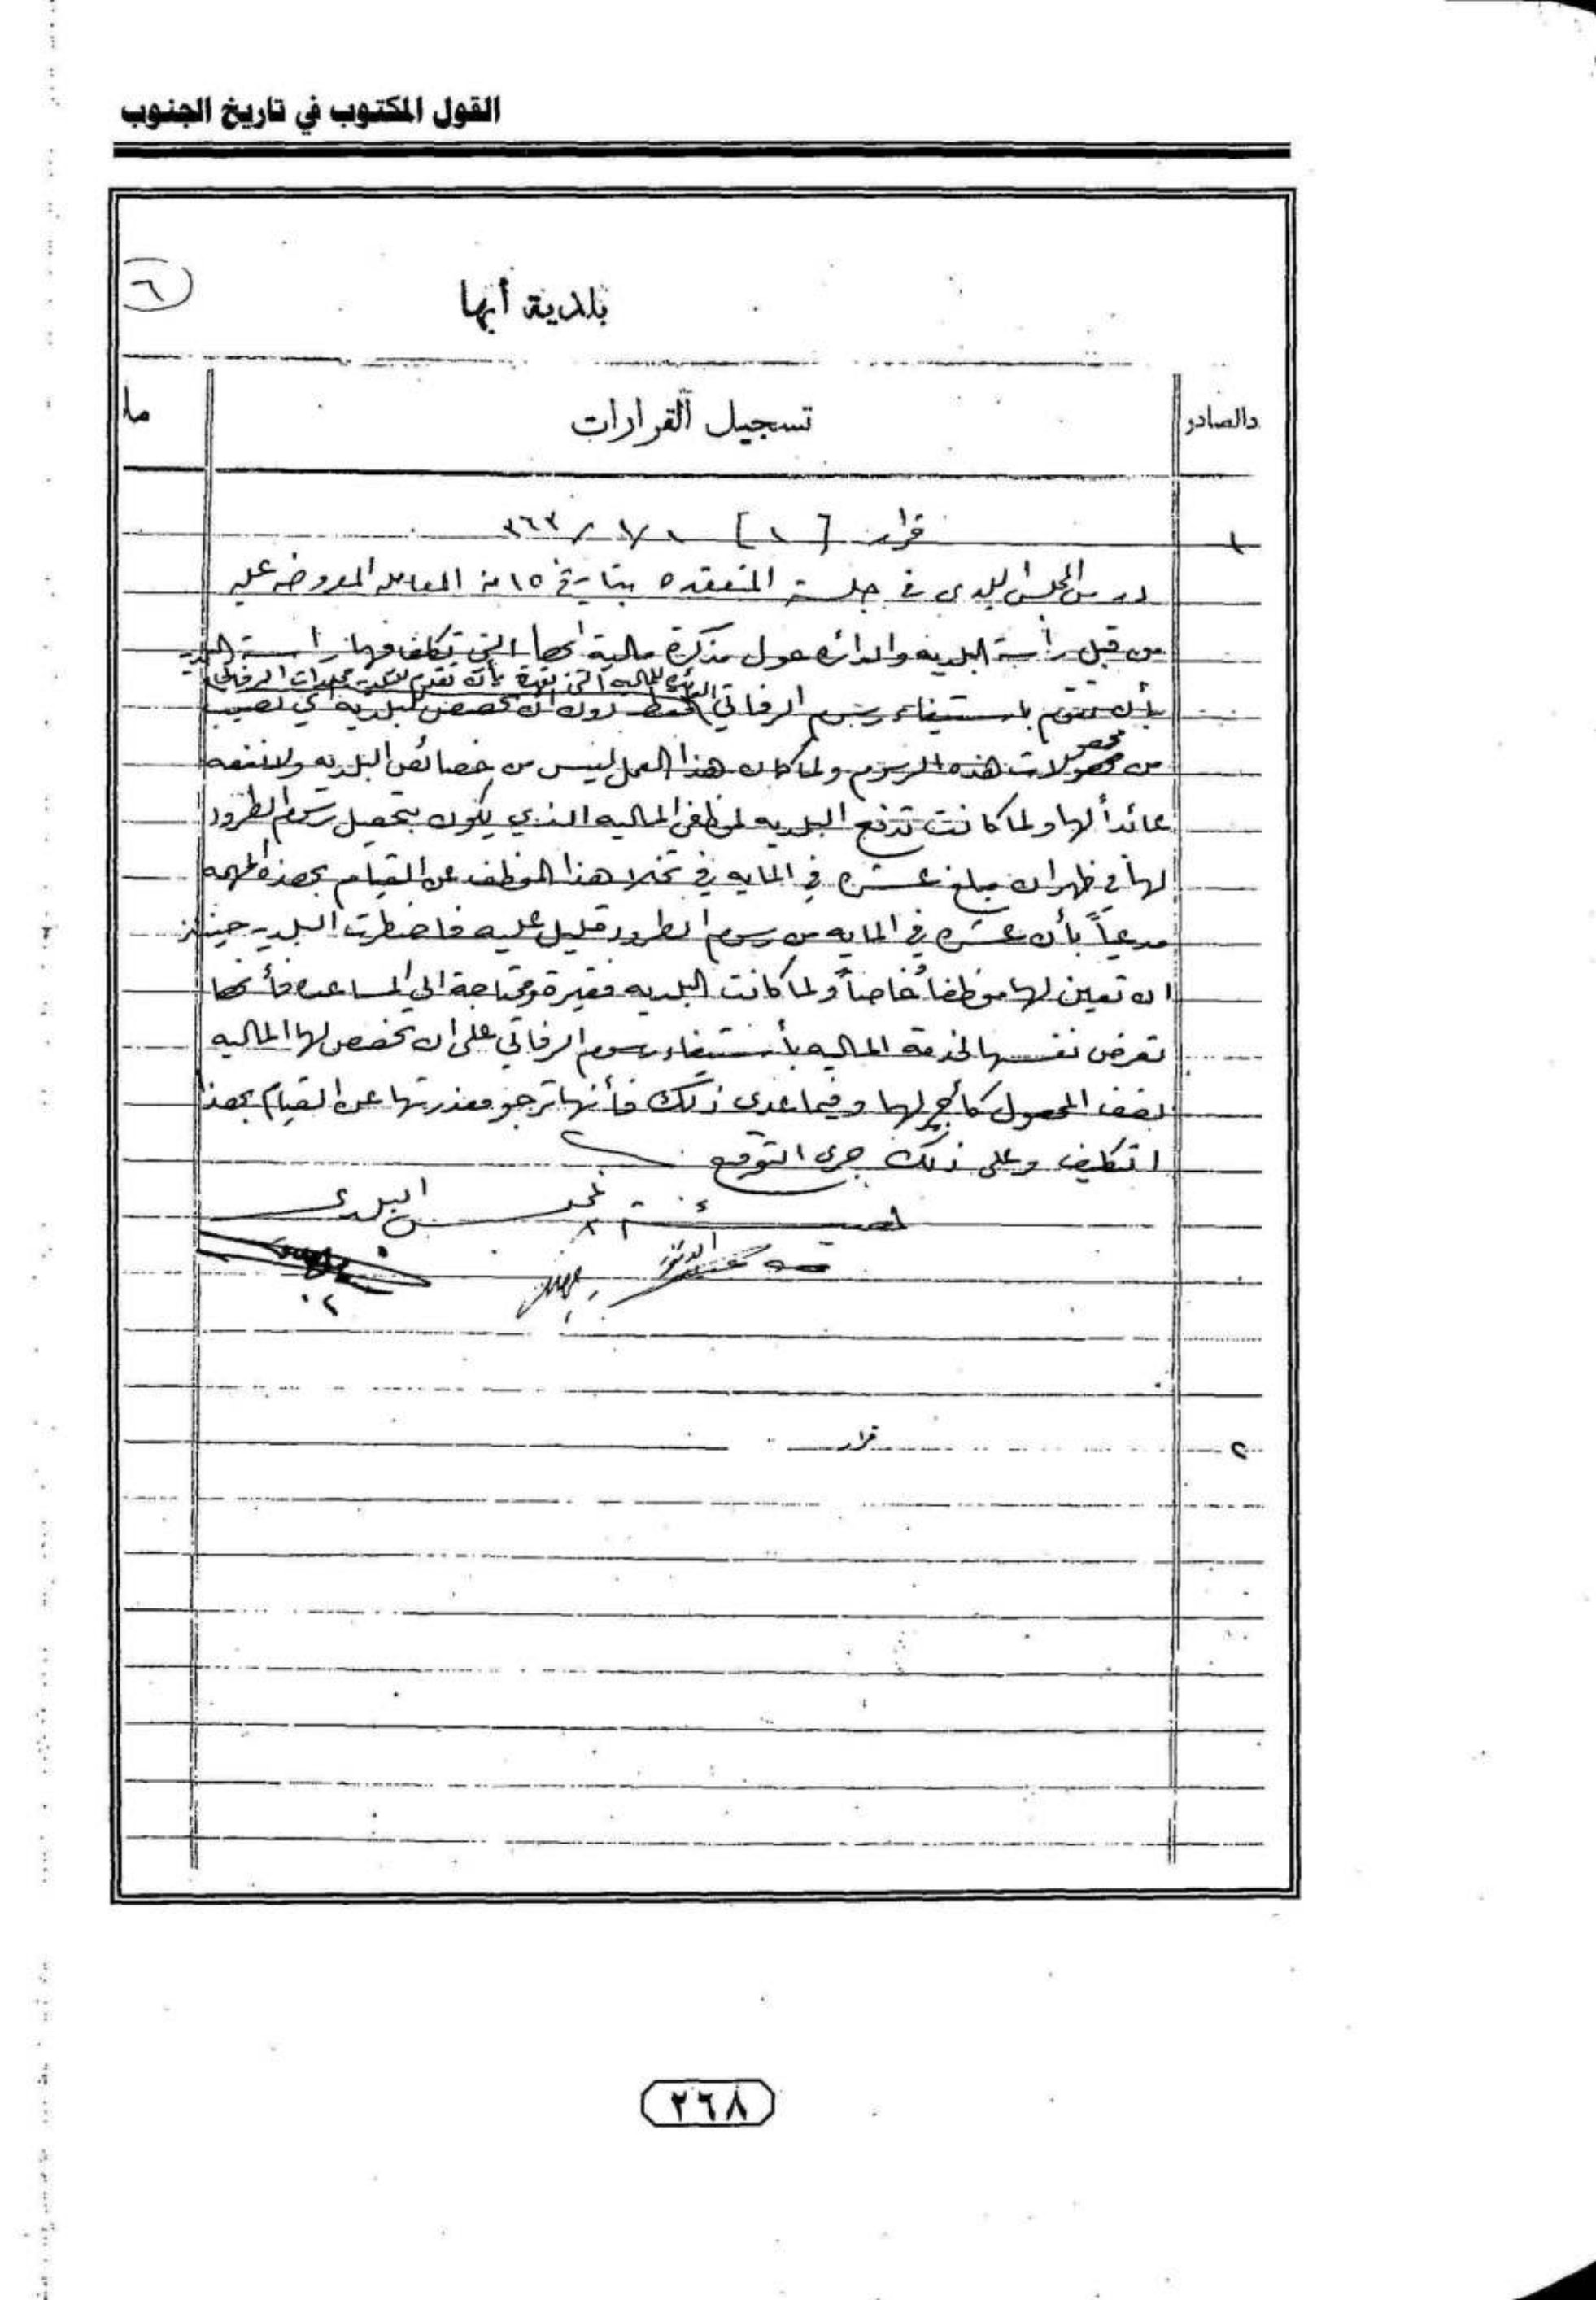 القول المكتوب في تاريخ الجنوب
٦
بلدية أبها
دالصادر
تسجيل القرارات
ما
١
قرار [ ١ ] ١ / ١ / ٣٦٣
درس المجلس البلدي في جلسته المنعقده بتاريخ ١٥ منه المعامله المعروضه عليه
من قبل رأسة البلديه والدائره حول مذكرة مالية ابها التي تكلف فيها رأسة البلديه
بأن تقوم باستيفاء رسوم الرفاتي فقط دون ان تخصص للبلدية اي نصيب
محصـ
من محصولات هذه الرسوم ولما كان هذا العمل ليس من خصائص البلديه ولا نفعه
عائداً لها ولما كانت تدفع البلديه لموظفي الماليه الذي يكون بتحصيل رسوم الطرود
لها في ظهران مبلغ عشره في المايه في تخلا هذا الموظف عن القيام بهذه المهمه
مدعياً بأن عشره في المايه من رسوم الطرود قليل عليه فاضطرت البلديه حينئذ
ان تعين لها موظفاً خاصاً ولما كانت البلديه فقيرة ومحتاجة الى المساعده فأنها
تعرض نفسها لخدمة الماليه بأستيفاء رسوم الرفاتي على ان تخصص لها الماليه
نصف المحصول كأجر لها وفيما عدى ذلك فأنها ترجو معذرتها عن القيام بهذا
التكليف وعلى ذلك جرى التوقيع
هيئة المجلس البلدي
٢
قرار
٢٦٨